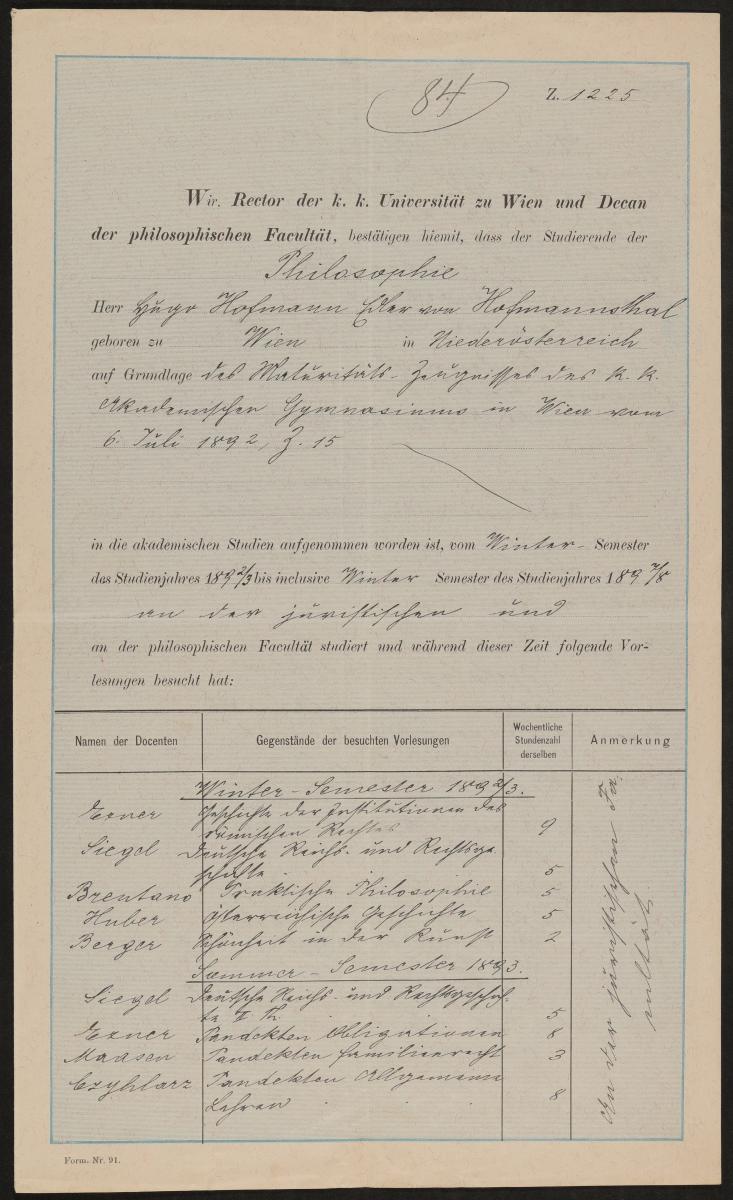 84
Z. 1225
Wir, Rector der k. k. Universität zu Wien und Decan
der philosophischen Facultät, bestätigen hiemit, dass der Studierende der
Philosophie
Herr Hugo Hofmann Edler von Hofmannsthal
geboren zu Wien in Niederösterreich
auf Grundlage des Maturitäts-Zeugnisses des k. k.
Akademischen Gymnasiums in Wien vom
6. Juli 1892, Z. 15
in die akademischen Studien aufgenommen worden ist, vom Winter- Semester
des Studienjahres 1892/3 bis inclusive Winter Semester des Studienjahres 1897/8
an der juristischen und
an der philosophischen Facultät studiert und während dieser Zeit folgende Vor-
lesungen besucht hat:
Namen der Docenten Gegenstände der besuchten Vorlesungen Wochentliche Stundenzahl derselben Anmerkung
Winter-Semester 1892/3.
Exner Geschichte der Institutionen des
römischen Rechtes 9
Siegel Deutsche Reichs- und Rechtsge
schichte 5
Brentano Praktische Philosophie 5
Huber Österreichische Geschichte 5
Berger Schönheit in der Kunst 2
Sommer-Semester 1893.
Siegel Deutsche Reichs- und Rechtsgeschich-
te II. Th. 5
Exner Pandekten Obligationen 8
Maasen Pandekten Familienrecht 3
Czyhlarz Pandekten Allgemeine
Lehren 8
An der juristischen Fa-
cultät.
Form. Nr. 91.